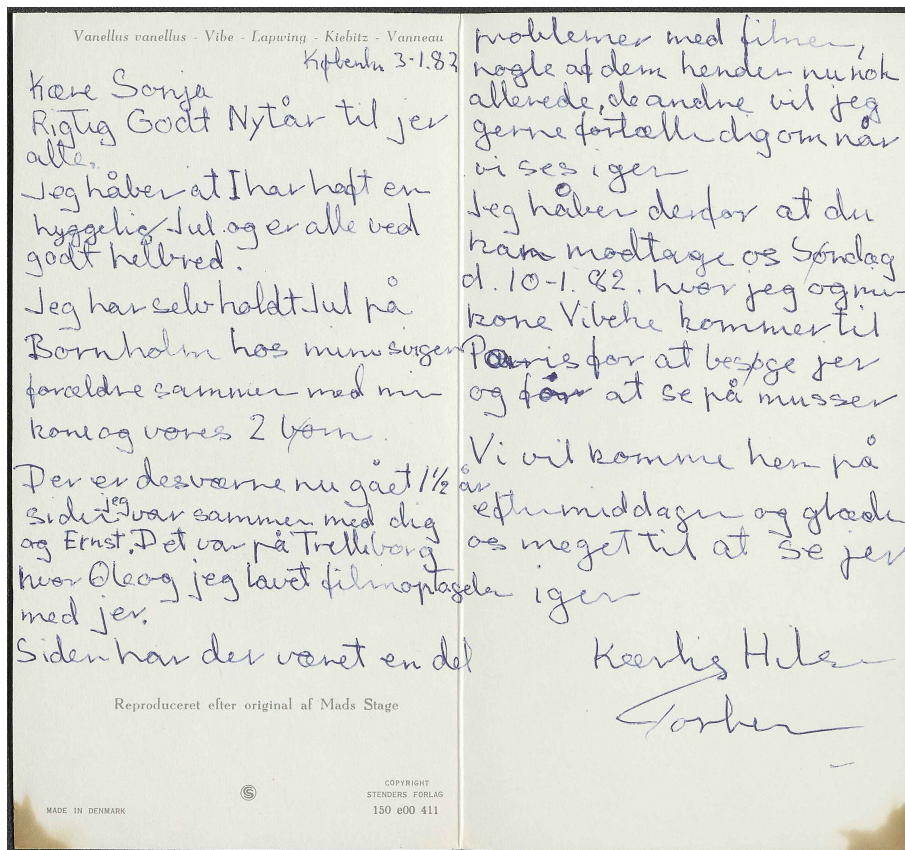 Vanellus vanellus - Vibe - Lapwing - Kiebitz - Vanneau
Københn 3-1.82
Kære Sonja
Rigtig Godt Nytår til jer
alle.
Jeg håber at I har haft en
hyggelig Jul og er alle ved
godt helbred.
Jeg har selv holdt Jul på
Bornholm hos mine sviger
forældre sammen med min
kone og vores 2 børn.
Der er desværre nu gået 1 1/2 år
siden jeg var sammen med dig
og Ernst. Det var på Trelleborg
hvor Ole og jeg lavet filmoptagelser
med jer.
Siden har der været en del
Reproduceret efter original af Mads Stage
MADE IN DENMARK
COPYRIGHT
STENDERS FORLAG
150 e00 411
problemer med filmen,
nogle af dem kender nu nok
allerede, de andre vil jeg
gerne fortælle dig om når
vi ses igen
Jeg håber derfor at du
kan modtage os Søndag
d. 10-1. 82. hvor jeg og min
kone Vibeke kommer til
Paris for at besøge jer
og for at se på musser
Vi vil komme hen på
eftermiddagen og glæder
os meget til at se jer
igen
Kærlig Hilsen
Torben